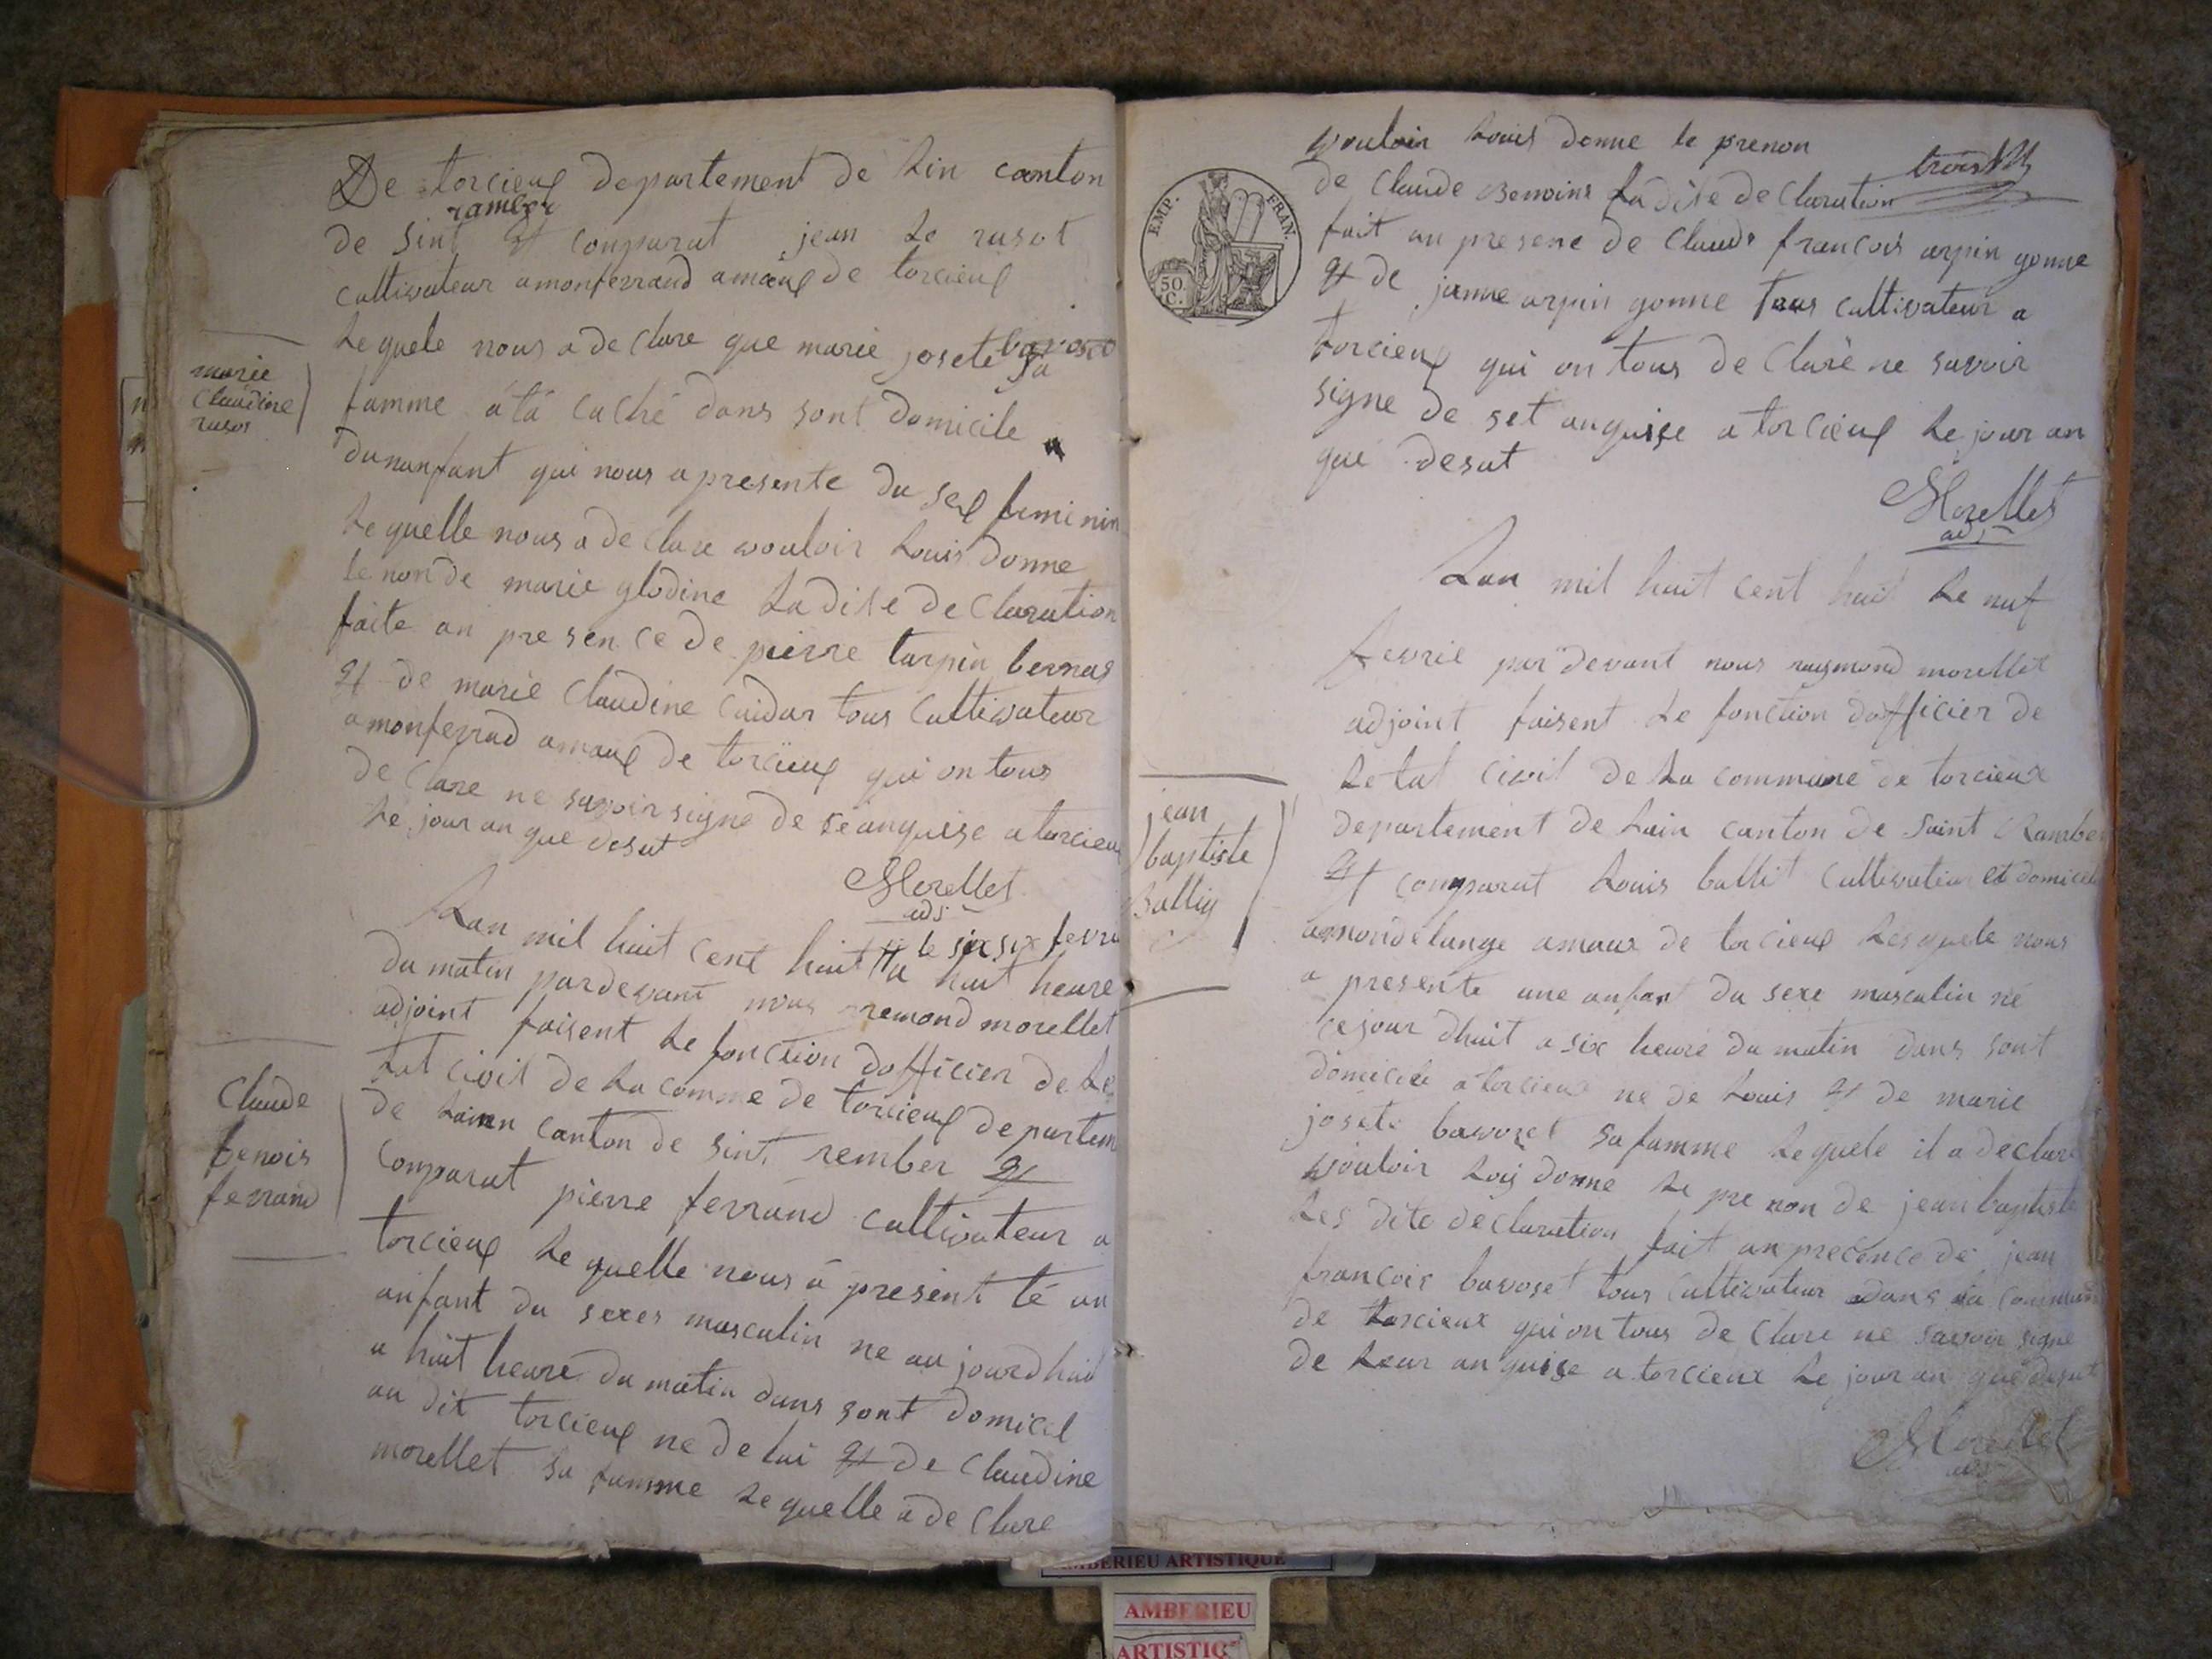 De torcieux departement de Lin canton
ramber
de sint et comparut jean Le rusot
cultivateur a monferrand amaux de torcieux
Lequele nous a de clare que marie josete bavoset sa
famme a tá cuché dans sont domicile
dunanfant qui nous a presente du sex feminin
Lequelle nous a de clare vouloir Louis donne
le non de marie glodine La dite de claration
faite an pre sen ce de pierre tarpin bernas
et de marie claudine cuidar tous cultivateur
a monferrad amaux de torcieux qui on tous
de clare ne savoir signe de se anquise a torcieux
Le jour an que desut
Morellet
adj
marie
claudine
rusos
Lan mil huit cent huit le six fevri
a huit heure
du matin pardevant nous remond morellet
adjoint faisent Le fonction dofficier de Le
tat civil de La comme de torcieux departem
de Lainn canton de sint rember et
comparut pierre ferrand cultivateur a
torcieux Le quelle nous a present té un
anfant du sexes masculin ne au jourdhui
a huit heure du matin dans sont domicel
au dit torcieux ne de lui et de claudine
morellet sa famme Le quelle a de clare
Claude
benois
ferrand
vouloir Louis donne le prenon
trois
de claude Benoins La dite de claration
fait an presene de claude francois arpin gonne
et de janne arpin gonne tous cultivateur a
torcieux qui on tous de claré ne savoir
signe de set anquise a torcieux Le jour an
que desut
Morellet
adj
EMP. FRAN.
50 C.
Lan mil huit cent huit Le nuf
fevrie par devant nous raymond morellet
adjoint faisent Le fonction dofficier de
Letat civil de La commune de torcieux
departement de Lain canton de saint Ramber
et comparut Louis ballit cultivateur et domicile
a mondelange amaux de torcieux Lesquele nous
a presente une anfant du sexe masculin né
ce jour dhuit a six heure du matin dans sont
domicile a torcieux ne de Louis et de marie
josete bavozet sa famme Lequele il a declare
vouloir Louis donne Le pre non de jean baptiste
Les dite declaration fait an precence de jean
francois bavoset tous cultivateur dans la commune
de torcieux qui on tous de clare ne savoir signe
de Leur anquise a torcieux Le jour an que desut
Morellet
adj
jean
baptiste
Balliy
AMBERIEU ARTISTIQUE
AMBERIEU
ARTISTIQ